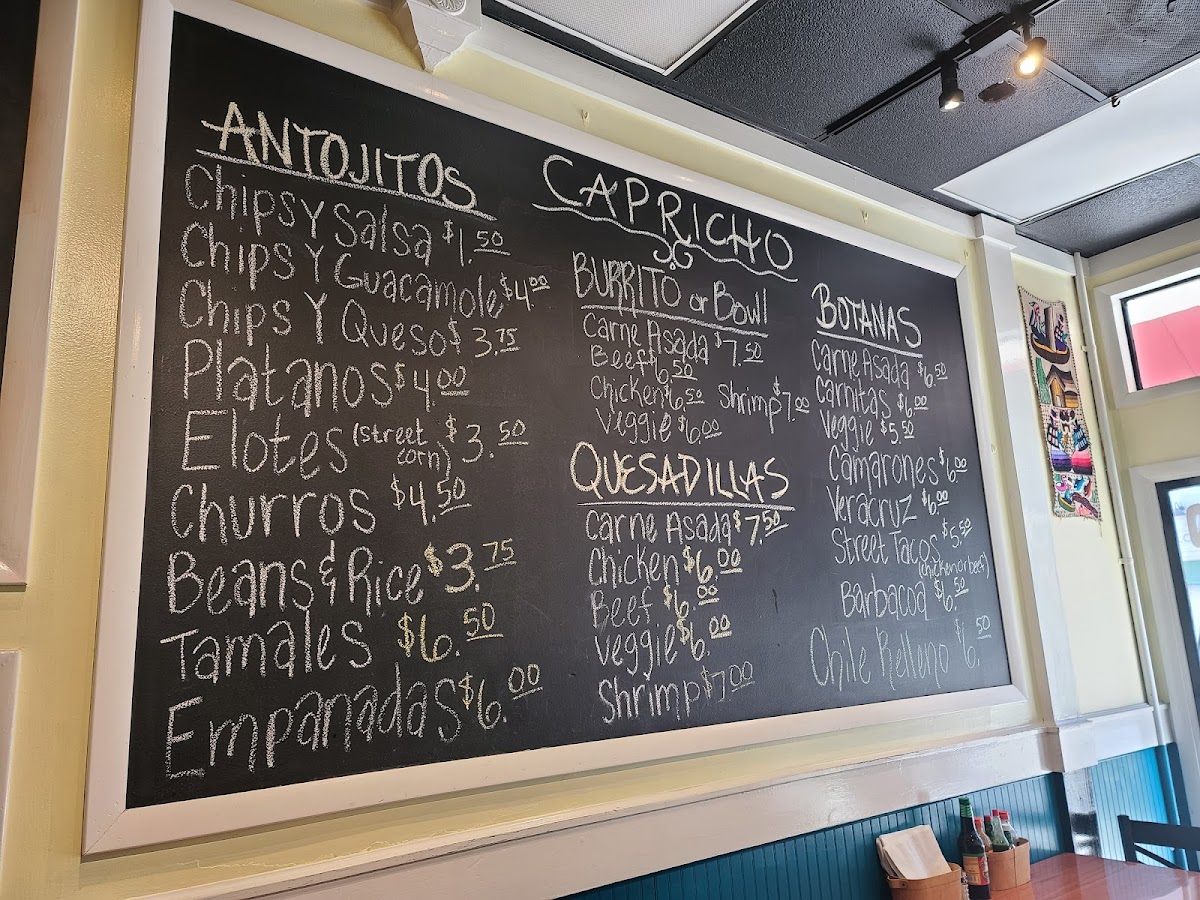 ANTOJITOS
Chips y Salsa $1.50
Chips y Guacamole $4.00
Chips y Queso $3.75
Platanos $4.00
Elotes (street corn) $3.50
Churros $4.50
Beans & Rice $3.75
Tamales $6.50
Empanadas $6.00
CAPRICHO
BURRITO or Bowl
Carne Asada $7.50
Beef $6.50
Chicken $6.50
Shrimp $7.00
Veggie $6.00
QUESADILLAS
Carne Asada $7.50
Chicken $6.00
Beef $6.00
Veggie $6.00
Shrimp $7.00
BOTANAS
Carne Asada $6.50
Carnitas $6.00
Veggie $5.50
Camarones $6.00
Veracruz $6.00
Street Tacos $5.50
(chicken or beef)
Barbacoa $6.50
Chile Relleno $6.50